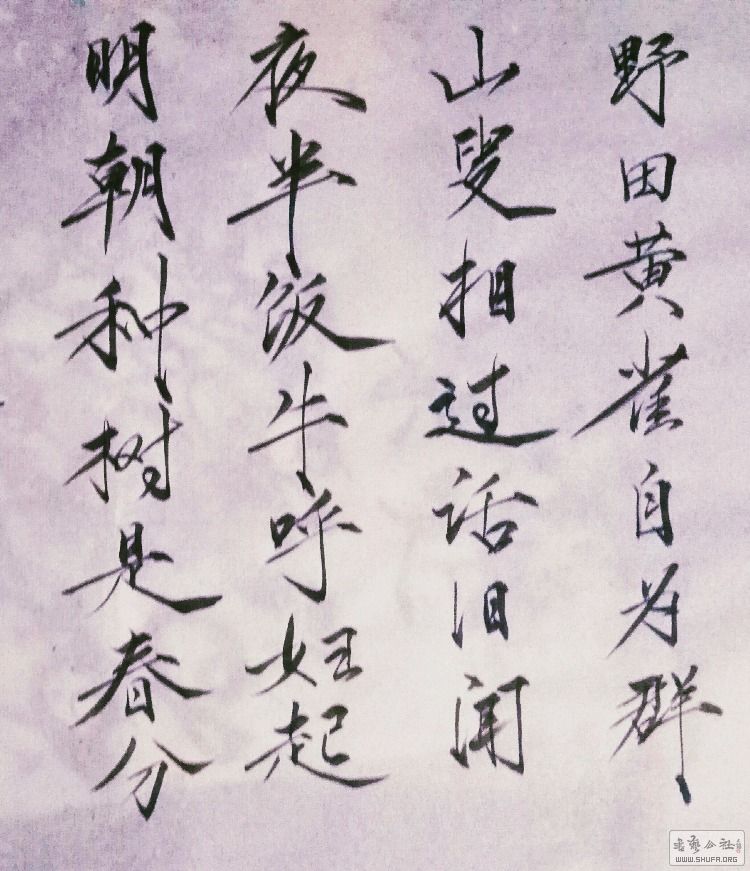 野田黄雀自为群
山叟相过话旧闻
夜半饭牛呼妇起
明朝种树是春分
书艺公社
WWW.SHUFA.ORG